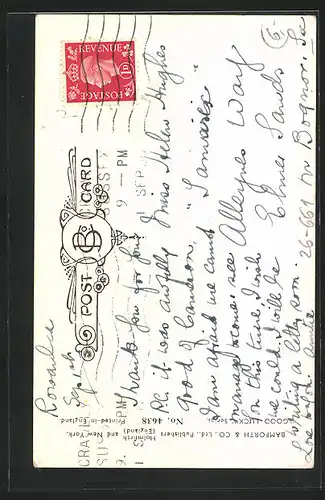 POST CARD
REVENUE
POSTAGE
1D
9 - PM
SEP
Thanks for your
P.C. it was awfully
good of Cameron.
I am afraid we cannot
arrange to come & see
you this time, I wish
we could, I will be
writing a letter soon.
Love from Auntie
Miss Helen Hughes
Alleyne Way
Elmer Sands
Nr Bognor, Sx
26-661
BAMFORTH & CO., Ltd., Publishers
Holmfirth (England) and New York.
"GOOD LUCK" Series.
No. 4638
Printed in England